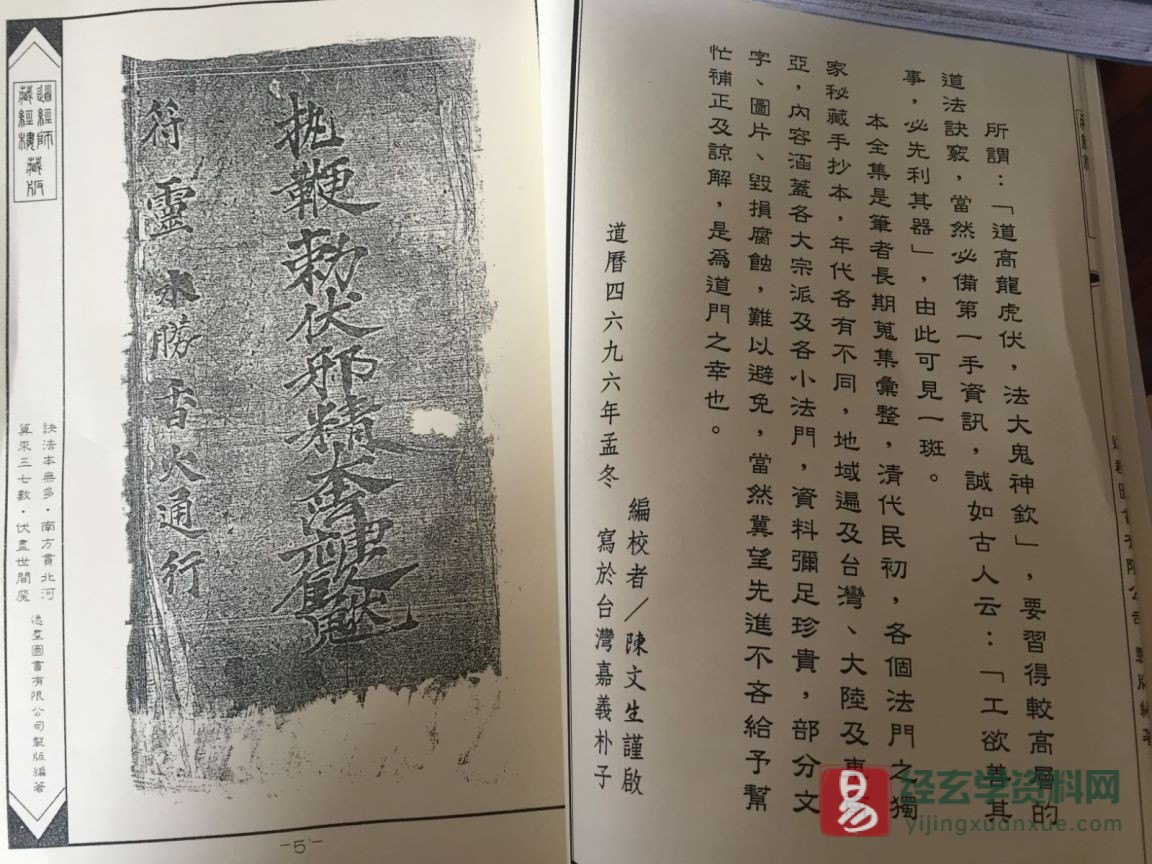 所謂：「道高龍虎伏，法大鬼神欽」，要習得較高層的
道法訣竅，當然必備第一手資訊，誠如古人云：「工欲善其
事，必先利其器」，由此可見一斑。
本全集是筆者長期蒐集彙整，清代民初，各個法門之獨
家秘藏手抄本，年代各有不同，地域遍及台灣、大陸及東
亞，內容涵蓋各大宗派及各小法門，資料彌足珍貴，部分文
字、圖片、毀損腐蝕，難以避免，當然冀望先進不吝給予幫
忙補正及諒解，是為道門之幸也。
編校者／陳文生謹啟
道曆四六九六年孟冬 寫於台灣嘉義朴子
勅伏邪精
符靈水勝香火通行
道經師
藏經樓 藏版
訣法本無多·南方貫北河
算來三七數·伏盡世間魔
逸群圖書有限公司製版編著
-5-
易
经玄学资料网
yijingxuanxue.com